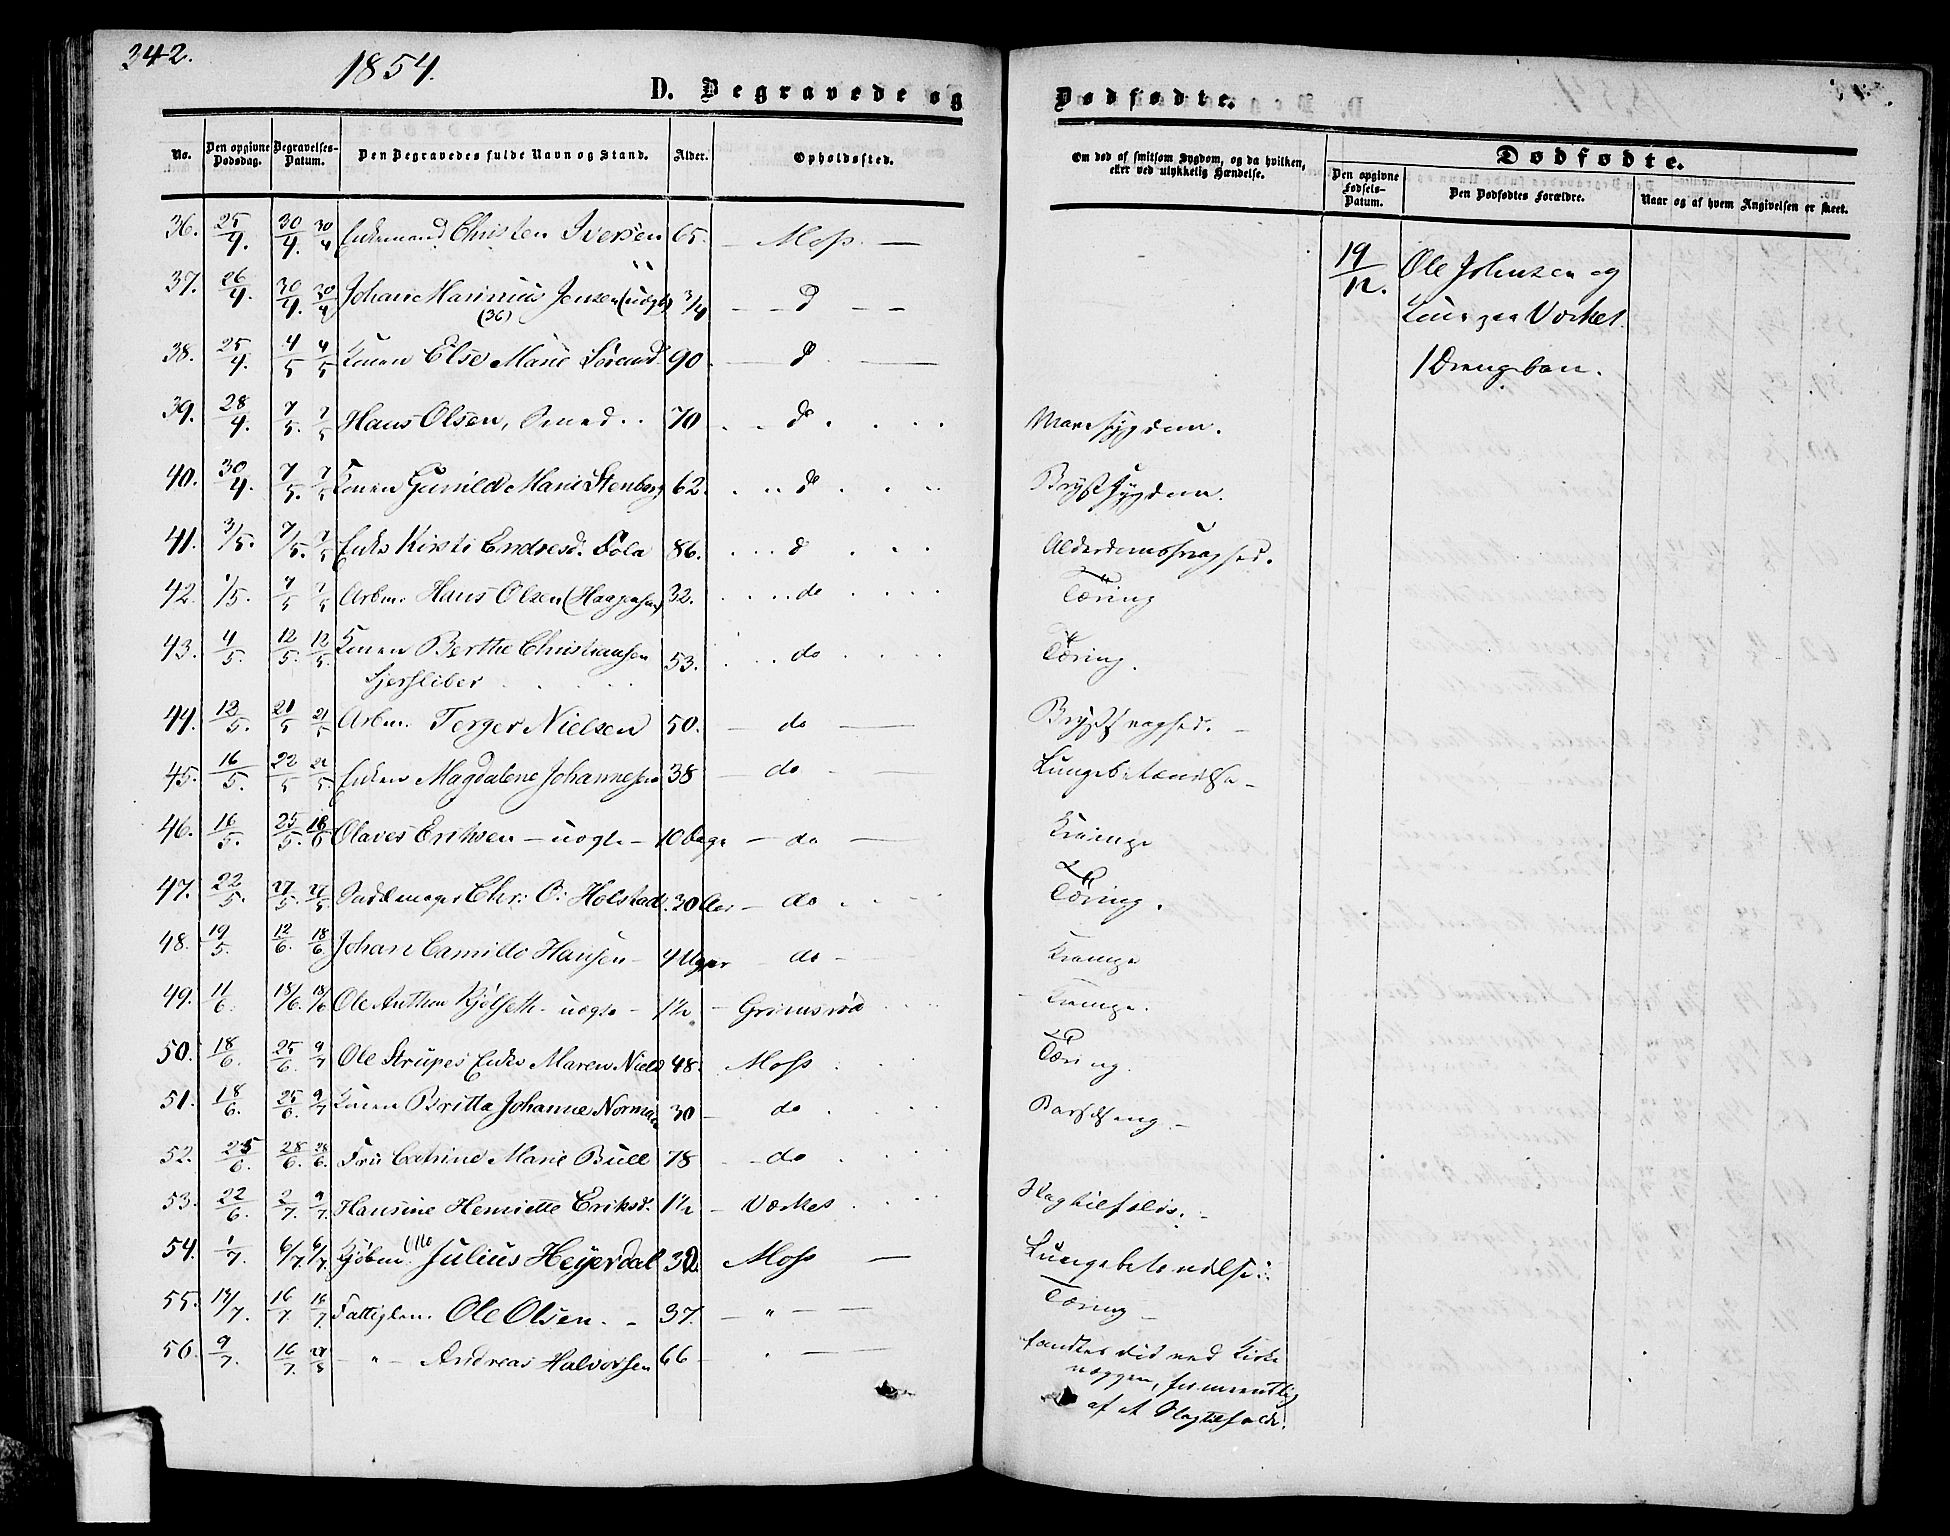 342.
1854.
D. Begravede og
Dødfødte.
No. Den opgivne Dødsdag. Begravelses-Datum. Den Begravedes fulde Navn og Stand. Alder. Opholdssted.
Om død af smitsom Sygdom, og da hvilken, eller ved ulykkelig Hændelse.
Dødfødte.
Den opgivne Fødsels-Datum. Den Dødfødtes Forældre. Naar og af hvem Angivelsen er skeet.
36. 25/4. 30/4. 30/4 Enkemand Christen Iversen 65. — Moss. —
37. 26/4. 30/4. 30/4 Johan Marinius Jensen (uægte) 3/4 — d — —
(36)
38. 25/4. 4/5 4/5 Konen Else Marie 90. — d —
39. 28/4. 7/5. 7/5 Hans Olsen, Smed 70 d Mavesygdom.
40. 30/4. 7/5. 7/5 Konen Gunild Marie Stenberg 62. d Brystsygdom.
41. 3/5. 7/5. 7/5 Enke Kirsti Endresd. 86. d Alderdomssvaghed.
42. 1/5. 7/5 7/5 Arbm. Hans Olsen (Haagensen) 32. do Tæring
43. 4/5. 12/5. 12/5. Konen Berthe Christiansen 53. do Tæring.
44. 12/5. 21/5 21/5 Arbm. Terger Nielsen 50. — do — Brystsvaghed. —
45. 16/5. 22/5 Enken Magdalene Johannesen 38 — do — Lungebetændelse —
46. 16/5. 25/5. 18/6 Olaves Eriksen — uægte — 10 Dage — do — Krampe
47. 22/5. 27/5. Chr: O: Holstad 30 Aar — do Tæring.
48. 19/5. 12/6. 18/6. Johan Camillo Hansen — 4 Uger — do — Krampe
49. 11/6. 18/6. 18/6 Ole Anthon Kjølseth — uægte — 1½ — Grimsrød Krampe.
50. 18/6. 25/6. 9/7 Ole Strupes Enke Maren Nielsd 48. Moss Tæring.
51. 18/6. 25/6. 9/7 Konen Britta Johanne Norman 30 — do Barselseng —
52. 25/6. 28/6. 28/6. Fru Catrine Marie Bull 78 — do
53. 22/6. 2/7. 9/7. Hansine Henriette Eriksd. 1½ — Værket Slagtilfælde. —
54. 1/7. 6/7. 6/7. Kjøbm. Julius Heyerdal 30. Moss — Lungebetændelse
55. 14/7. 16/7 16/7 Fattiglem. Ole Olsen. — 37. — " — — Tæring —
56. 9/7. 16/7. — " — Andreas Halvorsen 66 — " — fandtes død ved Kirke
væggen, formeentlig
af et Slagtilfælde.
19/12. Ole Johnsen og
Kone paa Værket.
1 Drengebarn.